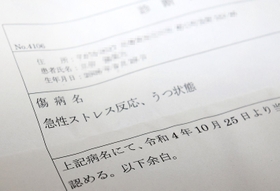 診断
No.4106
住所
患者氏名
生年月日
傷病名
急性ストレス反応、うつ状態
上記病名にて、令和4年10月25日より
認める。以下余白。